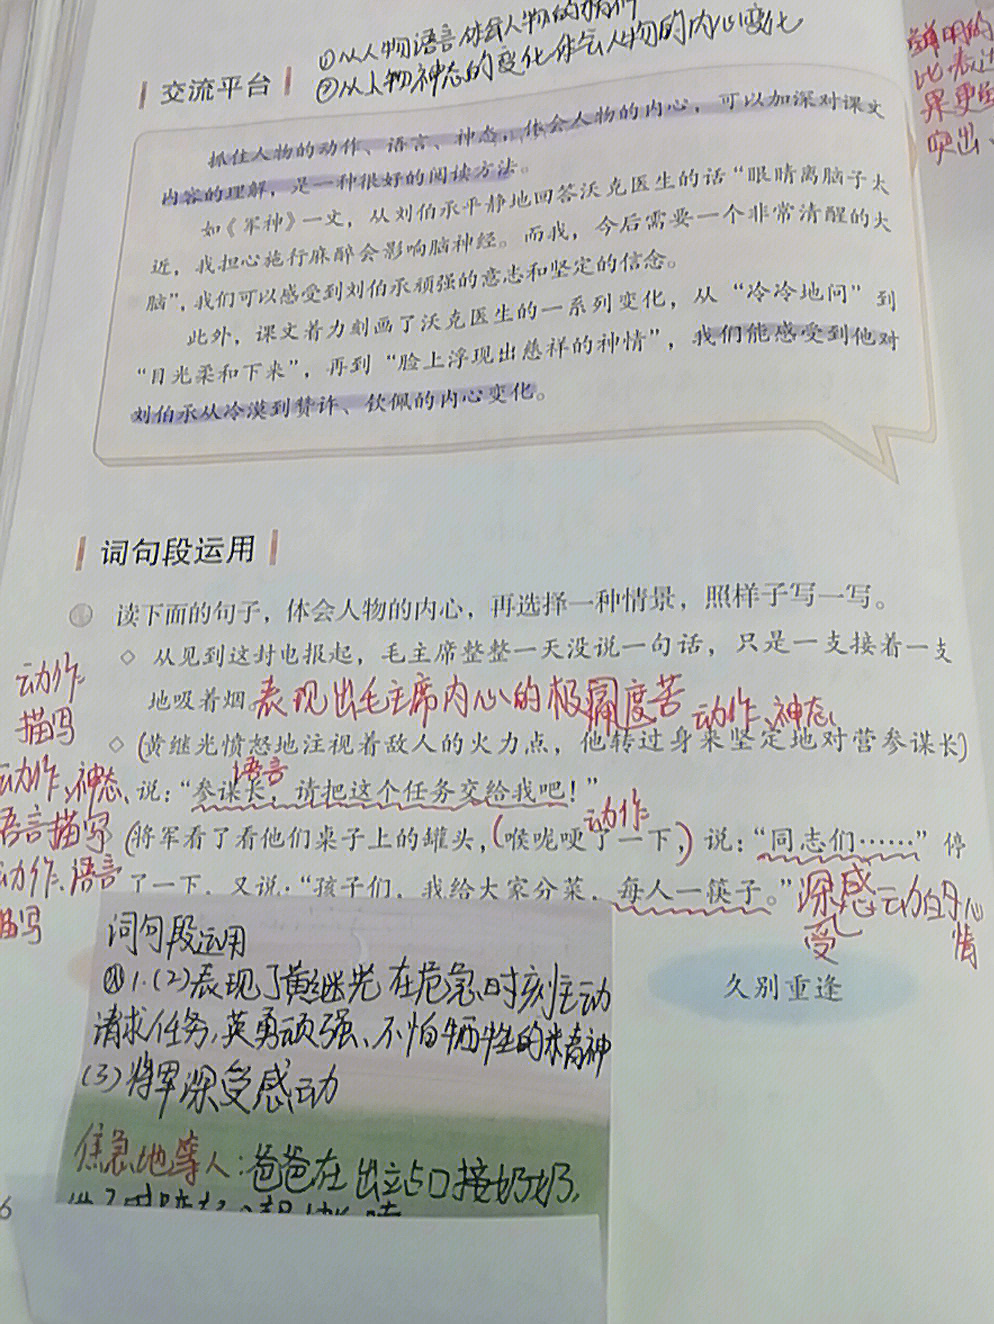 ①从人物语言体会人物的
②从人物神态的变化体会人物的内心变化
交流平台
鲜明的
比表达
果更
突出
抓住人物的动作、语言、神态，体会人物的内心，可以加深对课文
内容的理解，是一种很好的阅读方法。
如《军神》一文，从刘伯承平静地回答沃克医生的话“眼睛离脑子太
近，我担心施行麻醉会影响脑神经。而我，今后需要一个非常清醒的大
脑”，我们可以感受到刘伯承顽强的意志和坚定的信念。
此外，课文着力刻画了沃克医生的一系列变化，从“冷冷地问”到
“目光柔和下来”，再到“脸上浮现出慈祥的神情”，我们能感受到他对
刘伯承从冷漠到赞许、钦佩的内心变化。
词句段运用
读下面的句子，体会人物的内心，再选择一种情景，照样子写一写。
◇ 从见到这封电报起，毛主席整整一天没说一句话，只是一支接着一支
地吸着烟。表现出毛主席内心的极度痛苦
动作
描写
动作、神态
◇ (黄继光愤怒地注视着敌人的火力点，他转过身来坚定地对营参谋长)
语言
动作、神态、
说：“参谋长，请把这个任务交给我吧！”
语言描写
动作
(将军看了看他们桌子上的罐头，(喉咙哽了一下，)说：“同志们……”停
动作、语言
描写
了一下，又说：“孩子们，我给大家分菜，每人一筷子。”深受感动的心情
词句段运用
1.(2)表现了黄继光在危急时刻主动
请求任务，英勇顽强、不怕牺牲的精神
(3)将军深受感动
焦急地等人：爸爸在出站口接奶奶，
久别重逢
6